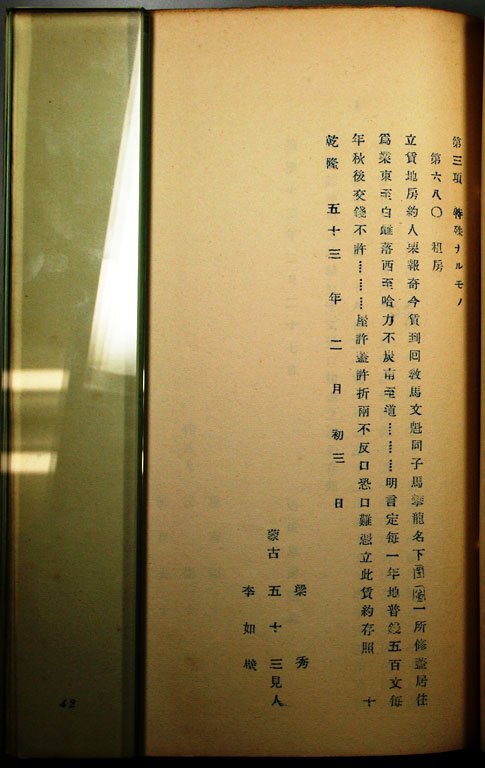 第三項 特殊ナルモノ
第六八〇 租房
立賃地房約人栗報奇今賃到回教馬文魁同子馬龍名下一所修蓋居住
為業東至白雕落西至哈力不炭南至道………明言定每一年地普錢五百文每
年秋後交錢不許………屋許蓋許折兩不反口恐口難憑立此賃約存照 十
乾隆 五十三 年 二 月 初 三 日
梁 秀
蒙古 五 十 三 見人
李 如
42